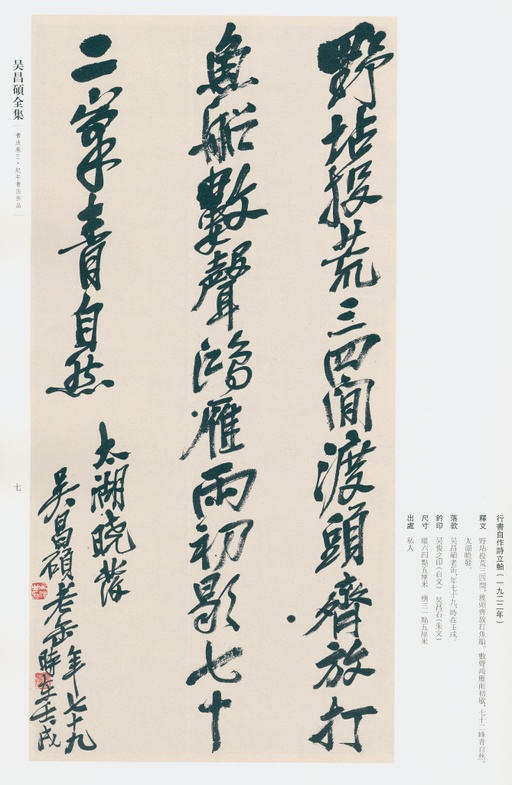 行書自作詩立軸（一九二二年）
釋文 野坫投荒三四間，渡頭齊放打魚船。數聲鴻雁雨初歇，七十二峰青自然。
太湖曉發。
落款 吴昌碩老缶，年七十九，時在壬戌。
鈐印 吴俊之印（白文） 吴昌石（朱文）
尺寸 縱六四點五厘米 橫三一點五厘米
出處 私人
野坫投荒三四間渡頭齊放打
魚船數聲鴻雁雨初歇七十
二峯青自然
太湖曉發
吴昌碩老缶年七十九
時在壬戌
吴昌碩全集
書法卷三·紀年書法作品
七